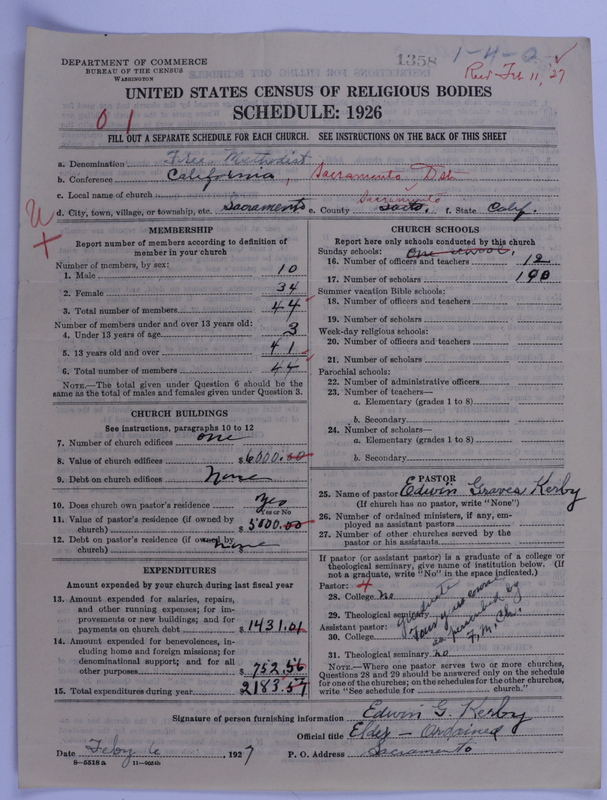 DEPARTMENT OF COMMERCE
BUREAU OF THE CENSUS
WASHINGTON
1358
1-4-0
Rec Feb 11, 27
UNITED STATES CENSUS OF RELIGIOUS BODIES
SCHEDULE: 1926
01
FILL OUT A SEPARATE SCHEDULE FOR EACH CHURCH. SEE INSTRUCTIONS ON THE BACK OF THIS SHEET
a. Denomination Free Methodist
b. Conference California, Sacramento Dst
c. Local name of church
Sacramento
d. City, town, village, or township, etc. Sacramento e. County Sacto. f. State Calif.
MEMBERSHIP
Report number of members according to definition of member in your church
Number of members, by sex:
1. Male 10
2. Female 34
3. Total number of members 44
Number of members under and over 13 years old:
4. Under 13 years of age 3
5. 13 years old and over 41
6. Total number of members 44
NOTE.—The total given under Question 6 should be the same as the total of males and females given under Question 3.
CHURCH BUILDINGS
See instructions, paragraphs 10 to 12
7. Number of church edifices one
8. Value of church edifices $6000.00
9. Debt on church edifices None
10. Does church own pastor's residence Yes
Yes or No
11. Value of pastor's residence (if owned by church) $5000.00
12. Debt on pastor's residence (if owned by church) None
EXPENDITURES
Amount expended by your church during last fiscal year
13. Amount expended for salaries, repairs, and other running expenses; for improvements or new buildings; and for payments on church debt $1431.01
14. Amount expended for benevolences, including home and foreign missions; for denominational support; and for all other purposes $752.56
15. Total expenditures during year $2183.57
CHURCH SCHOOLS
Report here only schools conducted by this church
Sunday schools: One school.
16. Number of officers and teachers 12
17. Number of scholars 190
Summer vacation Bible schools:
18. Number of officers and teachers
19. Number of scholars
Week-day religious schools:
20. Number of officers and teachers
21. Number of scholars
Parochial schools:
22. Number of administrative officers
23. Number of teachers—
a. Elementary (grades 1 to 8)
b. Secondary
24. Number of scholars—
a. Elementary (grades 1 to 8)
b. Secondary
PASTOR
25. Name of pastor Edwin Graves Kerby
(If church has no pastor, write "None")
26. Number of ordained ministers, if any, employed as assistant pastors
27. Number of other churches served by the pastor or his assistants
If pastor (or assistant pastor) is a graduate of a college or theological seminary, give name of institution below. (If not a graduate, write "No" in the space indicated.)
Pastor:
28. College No
29. Theological seminary
Assistant pastor:
30. College
Graduate
Four years course
as prescribed by
F. M. Ch.
31. Theological seminary no
NOTE.—Where one pastor serves two or more churches, Questions 28 and 29 should be answered only on the schedule for one of the churches; on the schedules for the other churches, write "See schedule for church."
Signature of person furnishing information Edwin G. Kerby
Official title Elder — Ordained
Date Feby 6, 1927 P. O. Address Sacramento
8—5518a 11—9024b